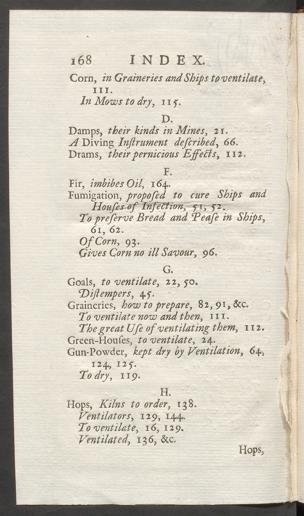 168 INDEX.
Corn, in Graineries and Ships to ventilate,
111.
In Mows to dry, 115.
D.
Damps, their kinds in Mines, 21.
A Diving Inſtrument deſcribed, 66.
Drams, their pernicious Effects, 112.
F.
Fir, imbibes Oil, 164.
Fumigation, propoſed to cure Ships and
Houſes of Infection, 51, 52.
To preſerve Bread and Peaſe in Ships,
61, 62.
Of Corn, 93.
Gives Corn no ill Savour, 96.
G.
Goals, to ventilate, 22, 50.
Diſtempers, 45.
Graineries, how to prepare, 82, 91, &c.
To ventilate now and then, 111.
The great Uſe of ventilating them, 112.
Green-Houſes, to ventilate, 24.
Gun-Powder, kept dry by Ventilation, 64,
124, 125.
To dry, 119.
H.
Hops, Kilns to order, 138.
Ventilators, 129, 144.
To ventilate, 16, 129.
Ventilated, 136, &c.
Hops,